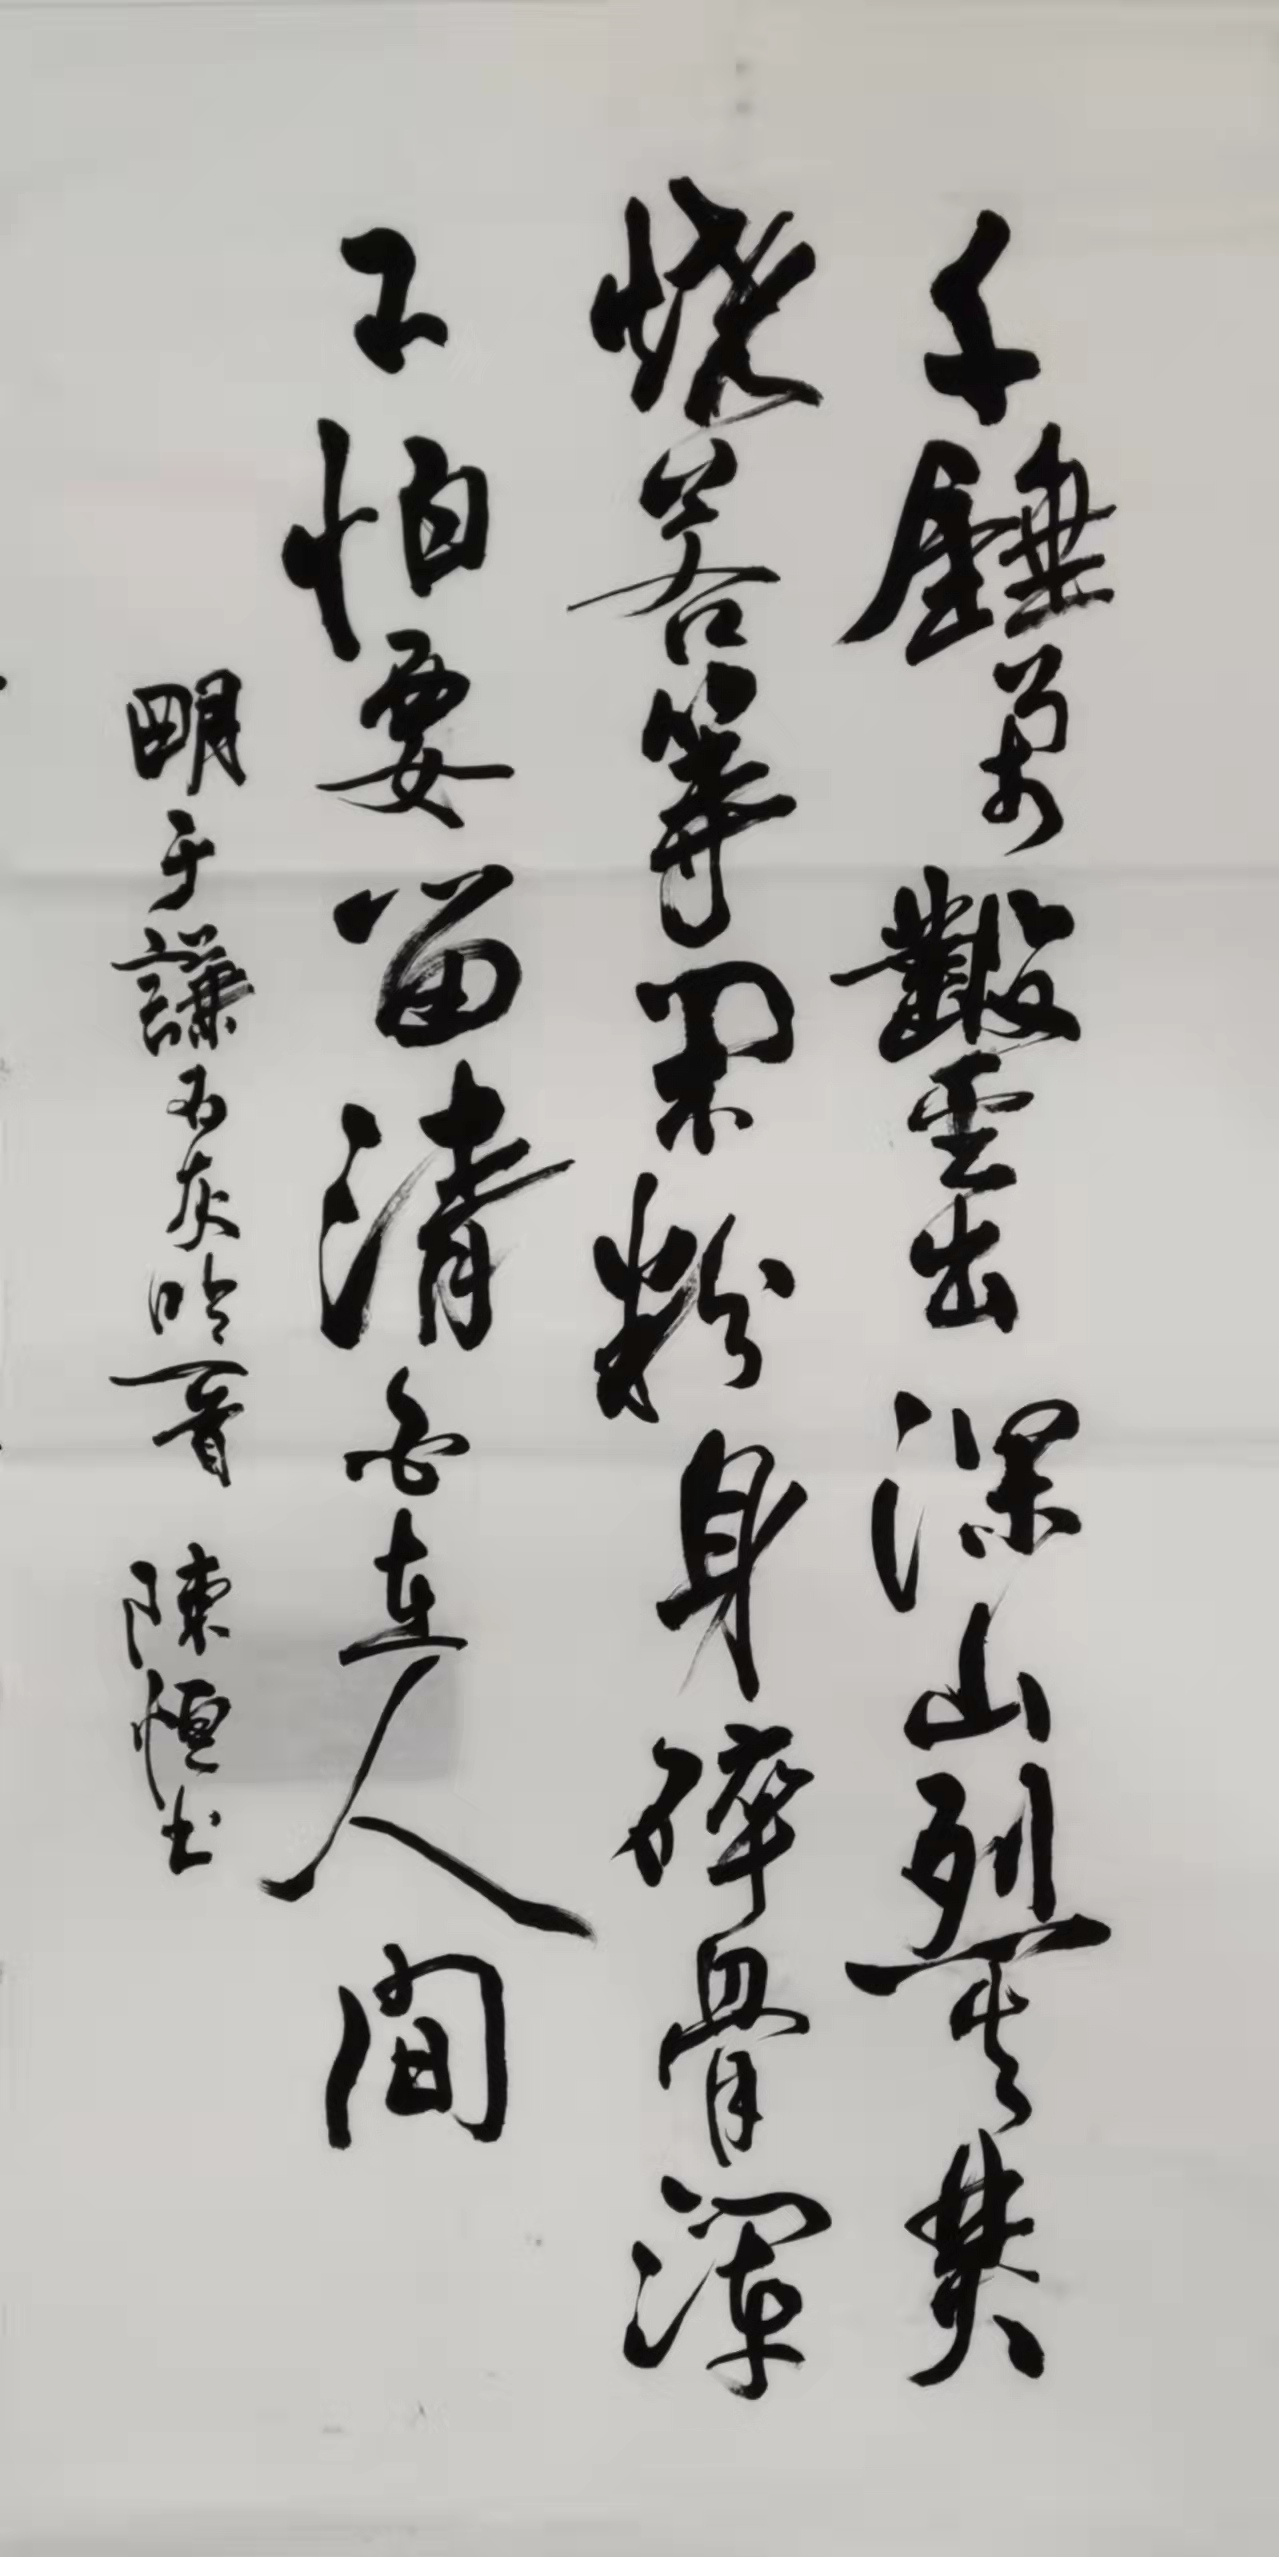 千錘萬鑿出深山烈火焚
燒若等閑粉身碎骨渾
不怕要留清白在人間
明于謙石灰吟一首 陳恒书